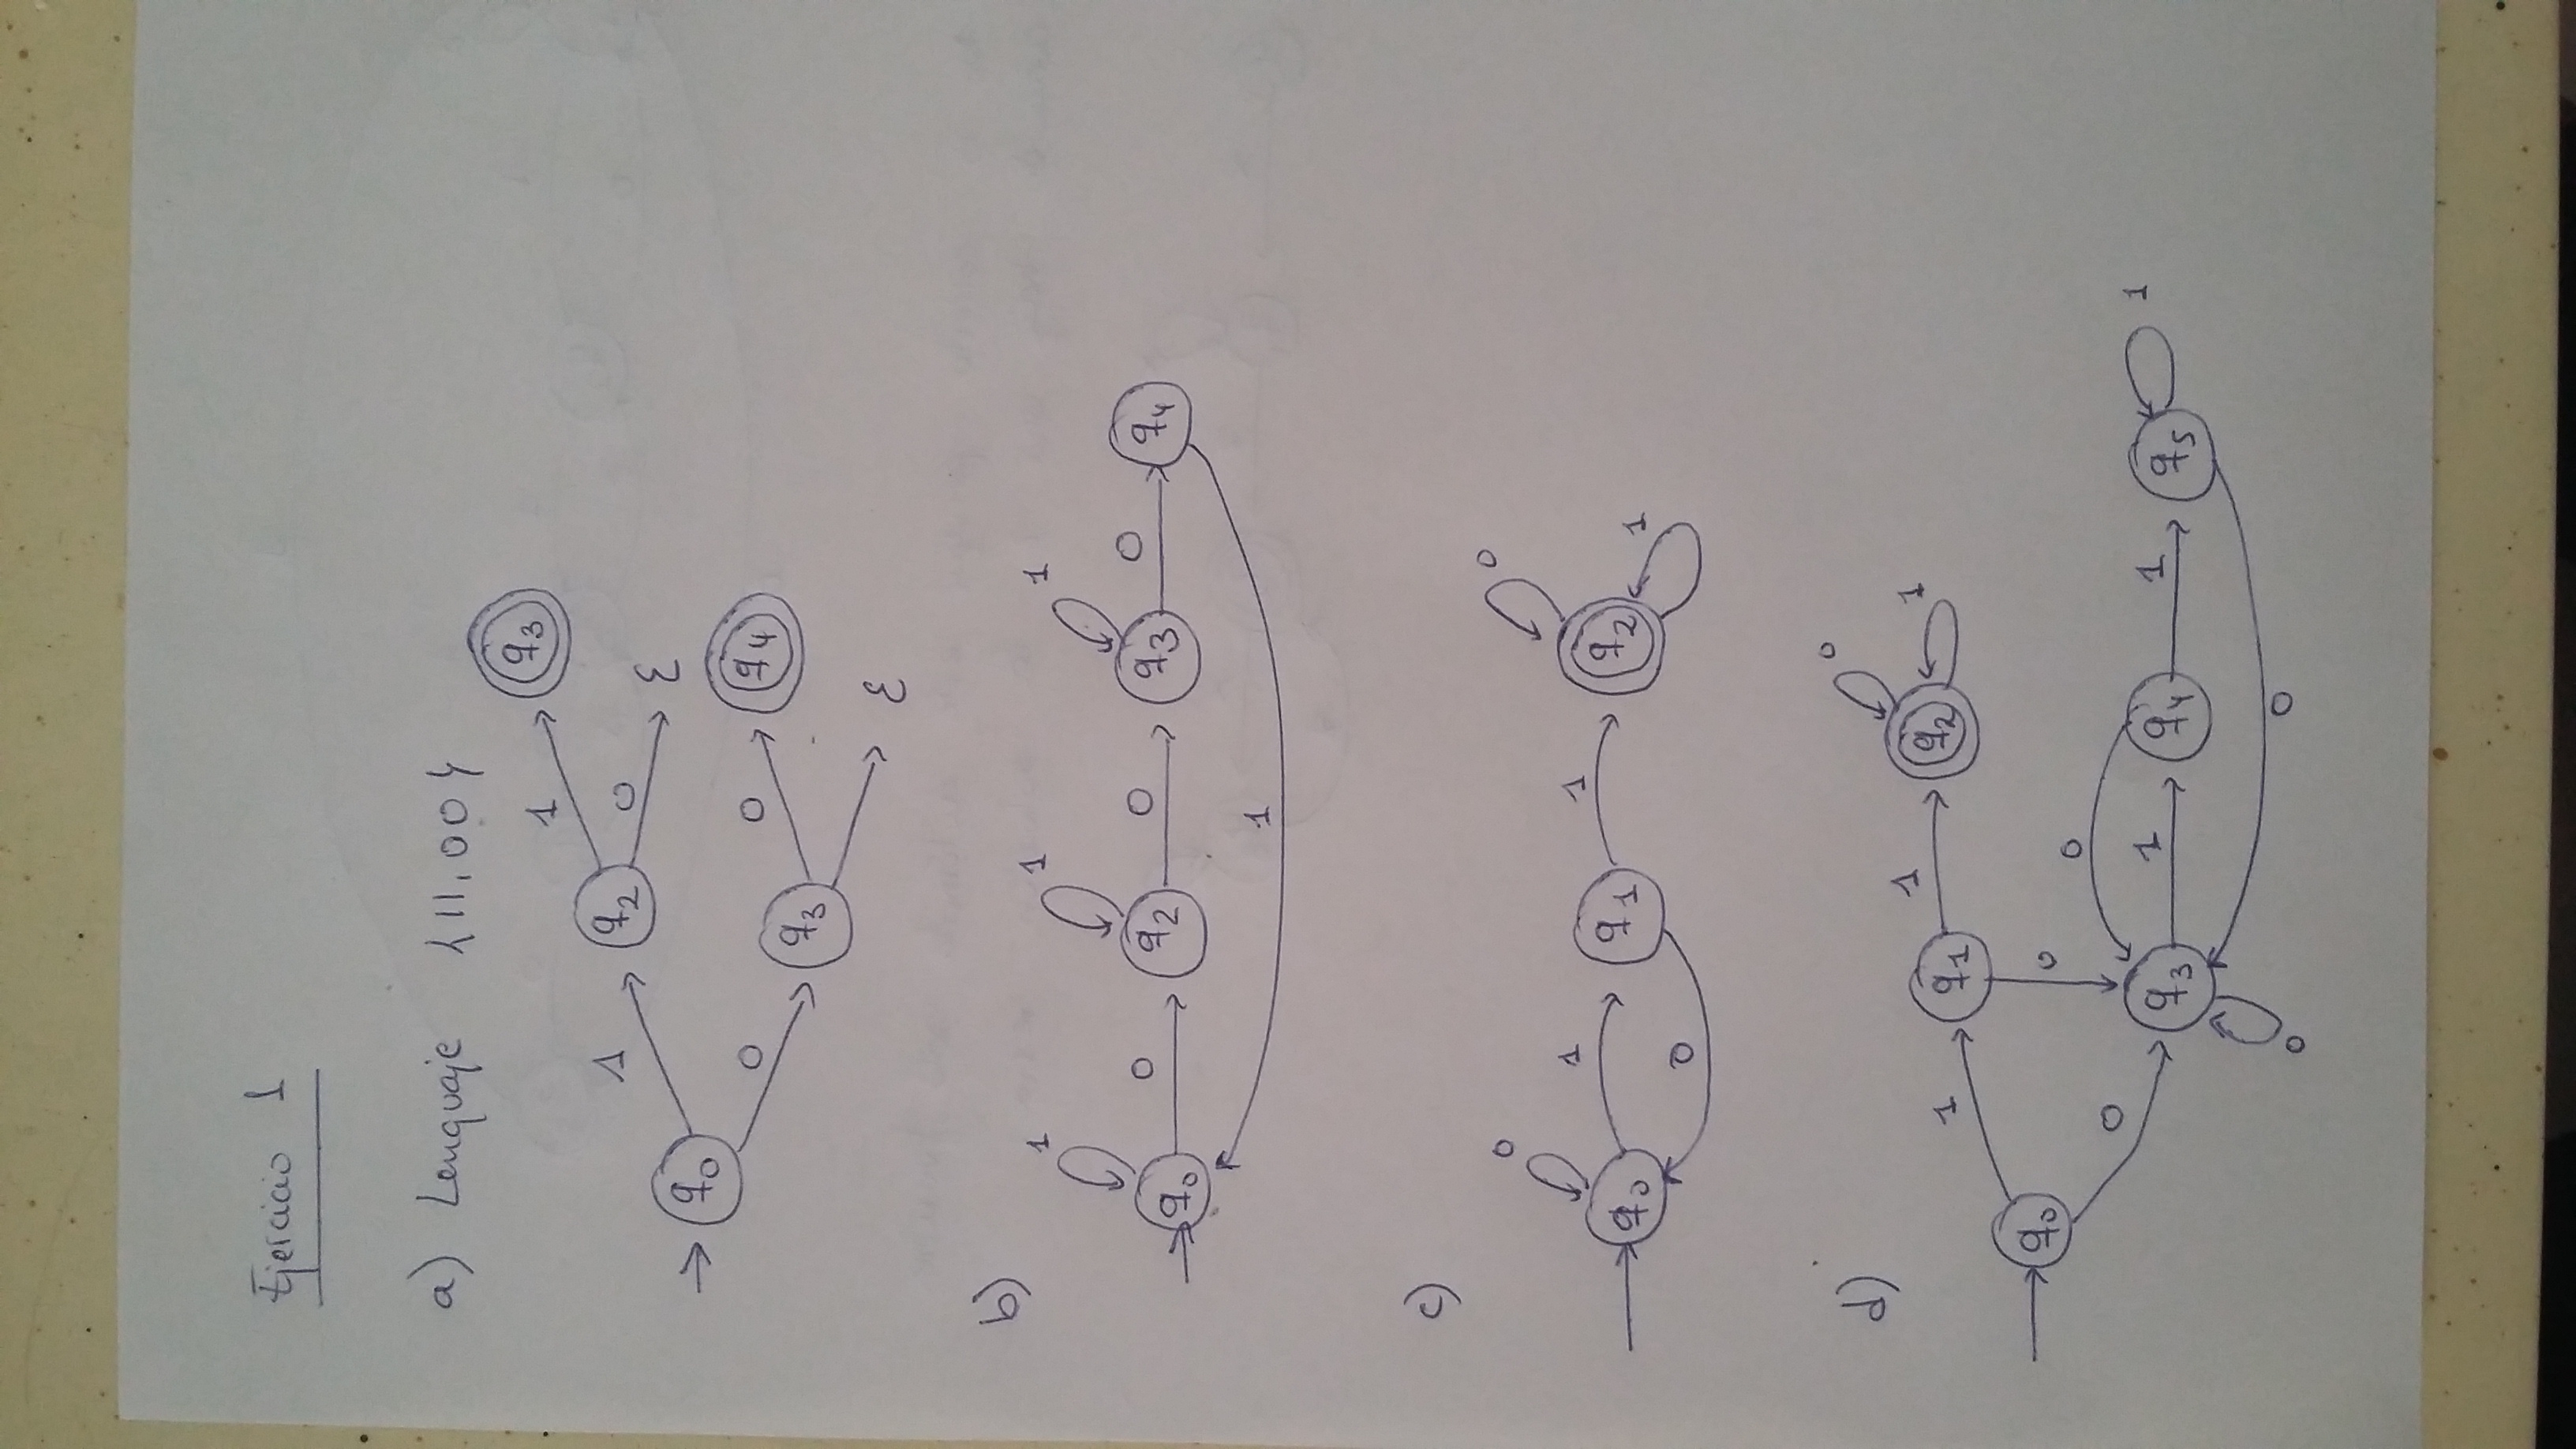 Ejercicio 1
a) Lenguaje {11,00}
1
q3
1
q2
0
ε
q0
0
q4
0
q3
ε
b)
1
1
1
q0
0
q2
0
q3
0
q4
1
c)
0
0
q0
1
q1
1
q2
1
0
d)
0
1
q1
1
q2
1
q0
0
0
0
q3
1
q4
1
q5
1
0
0